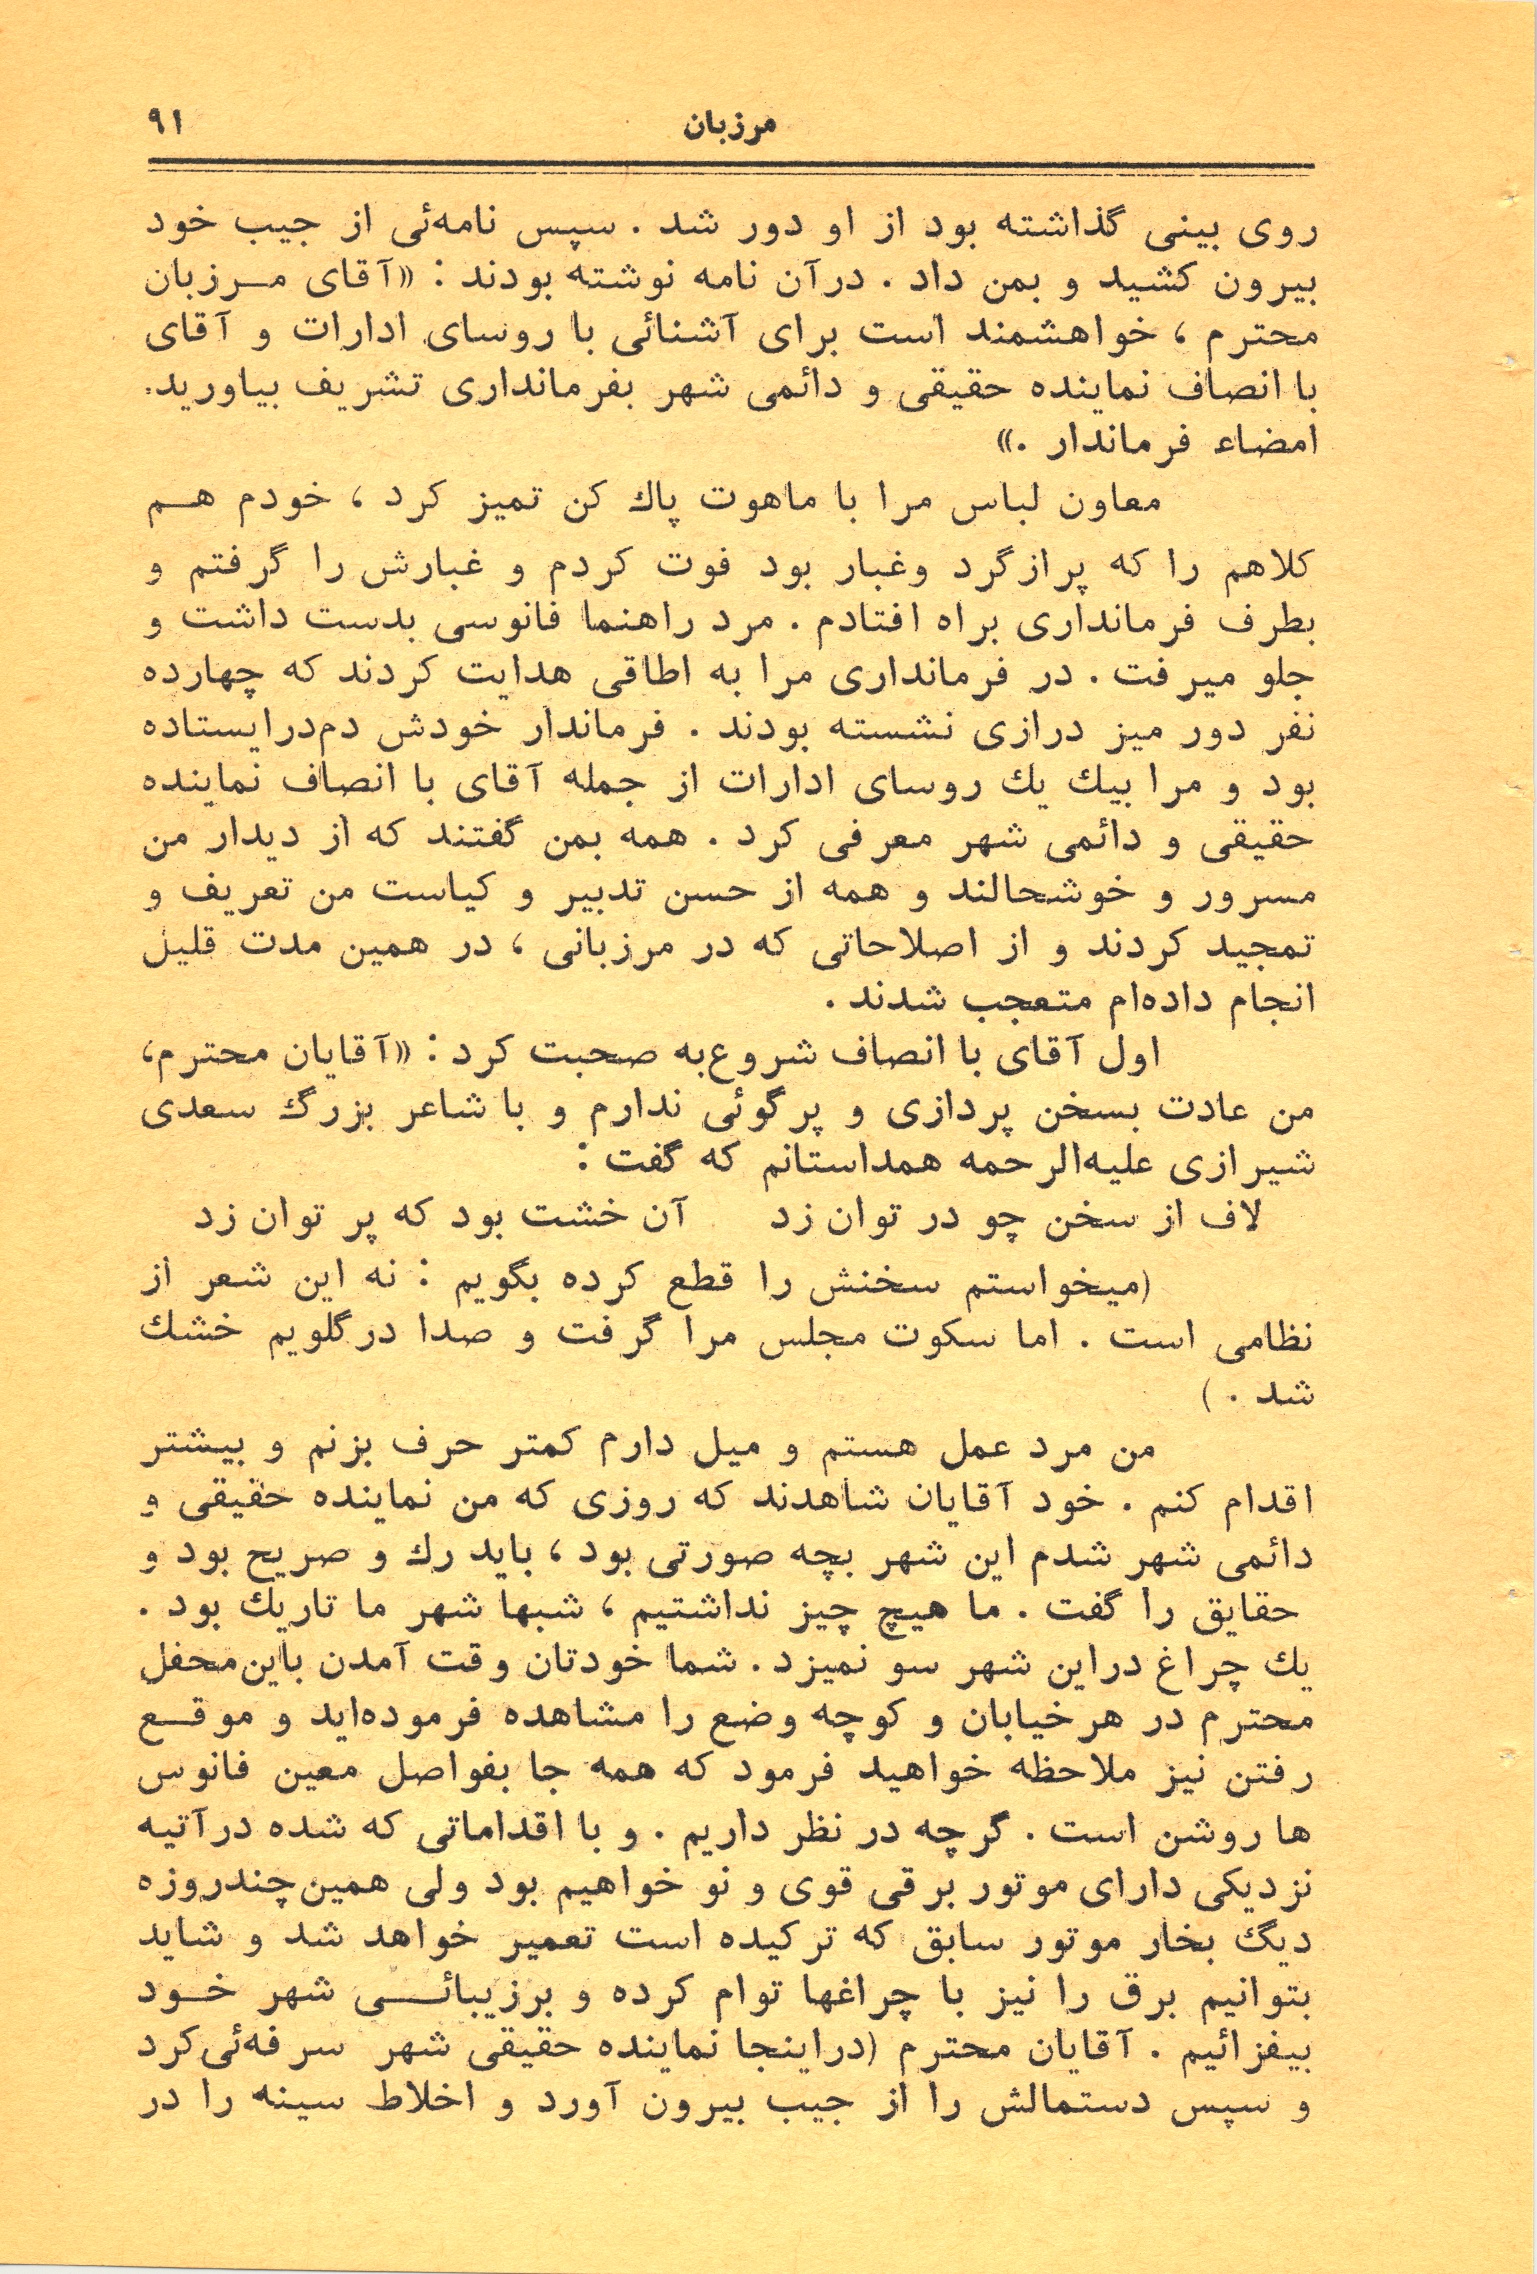 مرزبان ۹۱
روی بینی گذاشته بود از او دور شد . سپس نامه‌ئی از جیب خود
بیرون کشید و بمن داد . درآن نامه نوشته بودند : «آقای مـرزبان
محترم ، خواهشمند است برای آشنائی با روسای ادارات و آقای
با انصاف نماینده حقیقی و دائمی شهر بفرمانداری تشریف بیاورید.
امضاء فرماندار .»
معاون لباس مرا با ماهوت پاك کن تمیز کرد ، خودم هـم
کلاهم را که پرازگرد وغبار بود فوت کردم و غبارش را گرفتم و
بطرف فرمانداری براه افتادم . مرد راهنما فانوسی بدست داشت و
جلو میرفت . در فرمانداری مرا به اطاقی هدایت کردند که چهارده
نفر دور میز درازی نشسته بودند . فرماندار خودش دم‌درایستاده
بود و مرا بیك یك روسای ادارات از جمله آقای با انصاف نماینده
حقیقی و دائمی شهر معرفی کرد . همه بمن گفتند که از دیدار من
مسرور و خوشحالند و همه از حسن تدبیر و کیاست من تعریف و
تمجید کردند و از اصلاحاتی که در مرزبانی ، در همین مدت قلیل
انجام داده‌ام متعجب شدند .
اول آقای با انصاف شروع‌به صحبت کرد : «آقایان محترم،
من عادت بسخن پردازی و پرگوئی ندارم و با شاعر بزرگ سعدی
شیرازی علیه‌الرحمه همداستانم که گفت :
لاف از سخن چو در توان زد آن خشت بود که پر توان زد
(میخواستم سخنش را قطع کرده بگویم : نه این شعر از
نظامی است . اما سکوت مجلس مرا گرفت و صدا درگلویم خشك
شد . )
من مرد عمل هستم و میل دارم کمتر حرف بزنم و بیشتر
اقدام کنم . خود آقایان شاهدند که روزی که من نماینده حقیقی و
دائمی شهر شدم این شهر بچه صورتی بود ، باید رك و صریح بود و
حقایق را گفت . ما هیچ چیز نداشتیم ، شبها شهر ما تاریك بود .
یك چراغ دراین شهر سو نمیزد . شما خودتان وقت آمدن باین‌محفل
محترم در هرخیابان و کوچه وضع را مشاهده فرموده‌اید و موقـع
رفتن نیز ملاحظه خواهید فرمود که همه جا بفواصل معین فانوس
ها روشن است . گرچه در نظر داریم . و با اقداماتی که شده درآتیه
نزدیکی دارای موتور برقی قوی و نو خواهیم بود ولی همین‌چندروزه
دیگ بخار موتور سابق که ترکیده است تعمیر خواهد شد و شاید
بتوانیم برق را نیز با چراغها توام کرده و برزیبائـی شهر خـود
بیفزائیم . آقایان محترم (دراینجا نماینده حقیقی شهر سرفه‌ئی‌کرد
و سپس دستمالش را از جیب بیرون آورد و اخلاط سینه را در